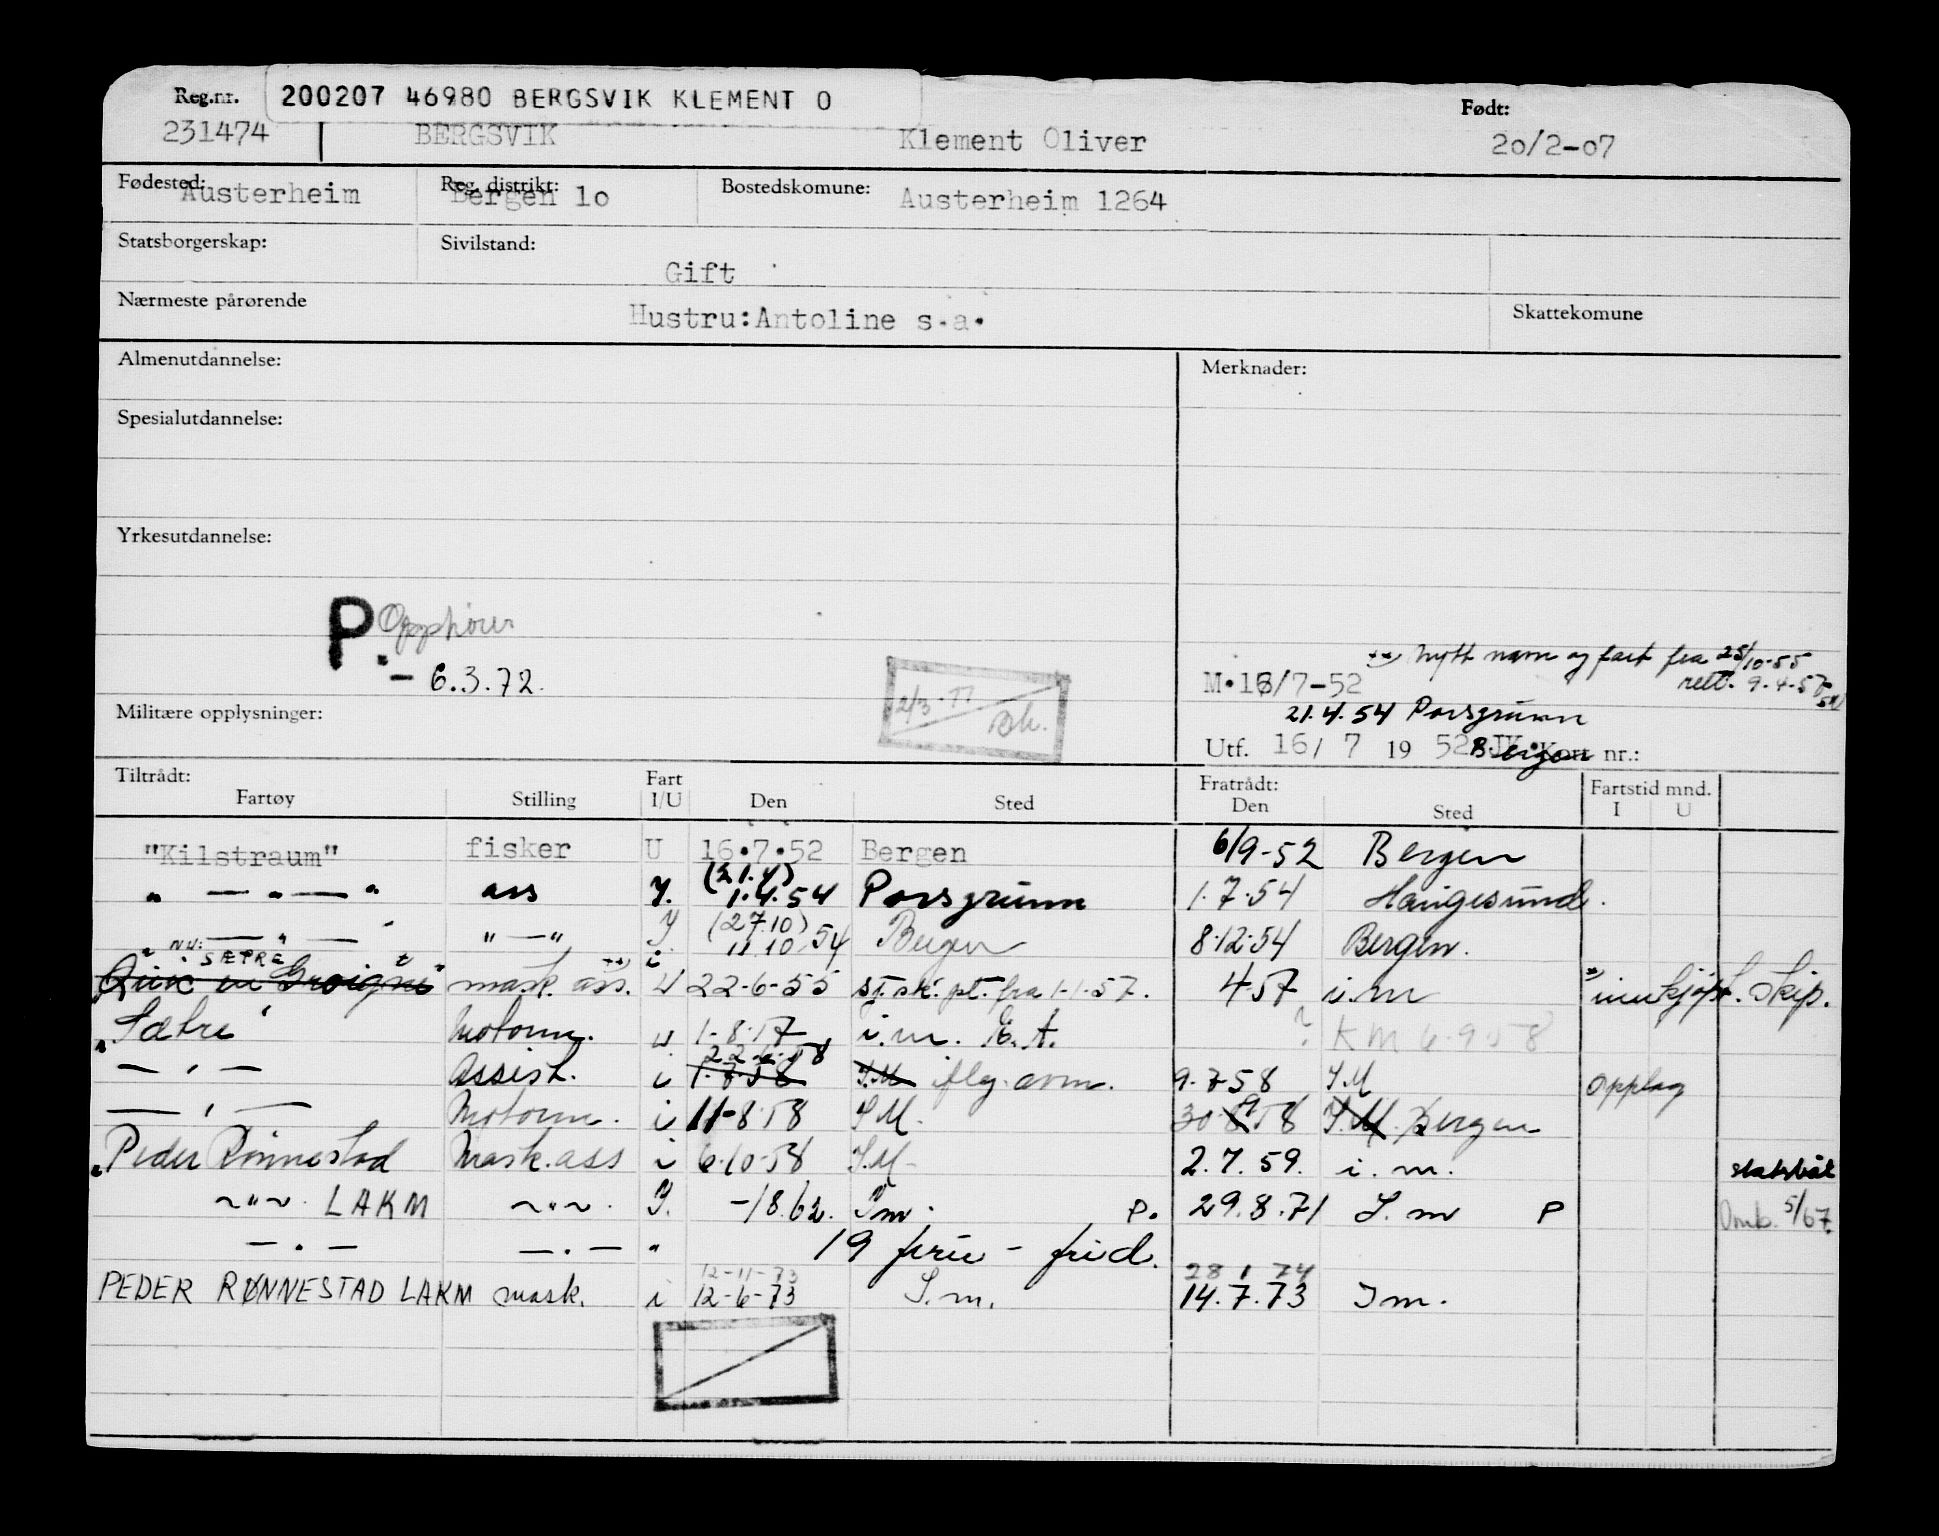 Reg.nr. 200207 46980 BERGSVIK KLEMENT O Født:
231474 BERGSVIK Klement Oliver 20/2-07
Fødested: Austerheim Reg. distrikt: Bergen 10 Bostedskomune: Austerheim 1264
Statsborgerskap: Sivilstand:
Gift
Nærmeste pårørende Hustru:Antoline s.a. Skattekomune
Almenutdannelse: Merknader:
Spesialutdannelse:
Yrkesutdannelse:
P. Opphører
- 6.3.72.
xx) Nytt navn og fart fra 25/10-55
rett. 9.4.57
M.16/7-52
2/3-77
21.4.54 Porsgrunn
Militære opplysninger:
Utf. 16/ 7 19 52 Bergen Kort nr.:
Tiltrådt: Fart Fratrådt: Fartstid mnd.
Fartøy Stilling I/U Den Sted Den Sted I U
"Kilstraum" fisker U 16.7.52 Bergen 6/9-52 Bergen
(21.4)
" — " — " ass Y. 1.4.54 Porsgrunn 1.7.54 Haugesund.
(27.10)
— " — " — " Y. 11.10.54 Bergen 8.12.54 Bergen.
nu: SÆTRE
mask. ass. U 22-6-55 sj.sk. pt. fra 1-1-57. 4.57 i.m innkjøpt. Skip.
"Sætre" Motorm. 1-8.57 i.m. E.A. ? KM 6.9.58
22.4.58
— " — Assist. i 1.7.58 I.M iflg. avm. 9.758 I.M opplag
— " — Motorm. i 11-8.58 I.M. 30.8.58 I.M. Bergen
"Peder Rønnestad Mask.ass i 6.10.58 I.M- 2.7.59. i.m. statsbåt
~"~. LAKM ~"~. I. -18.62. Im. P. 29.8.71 I.m P Omb. 5/67
— . — — . — " 19 ferie - frid.
12-11-73 28 1 74
PEDER RØNNESTAD LAKM mask. i 12-6-73 I.m. 14.7.73 Im.